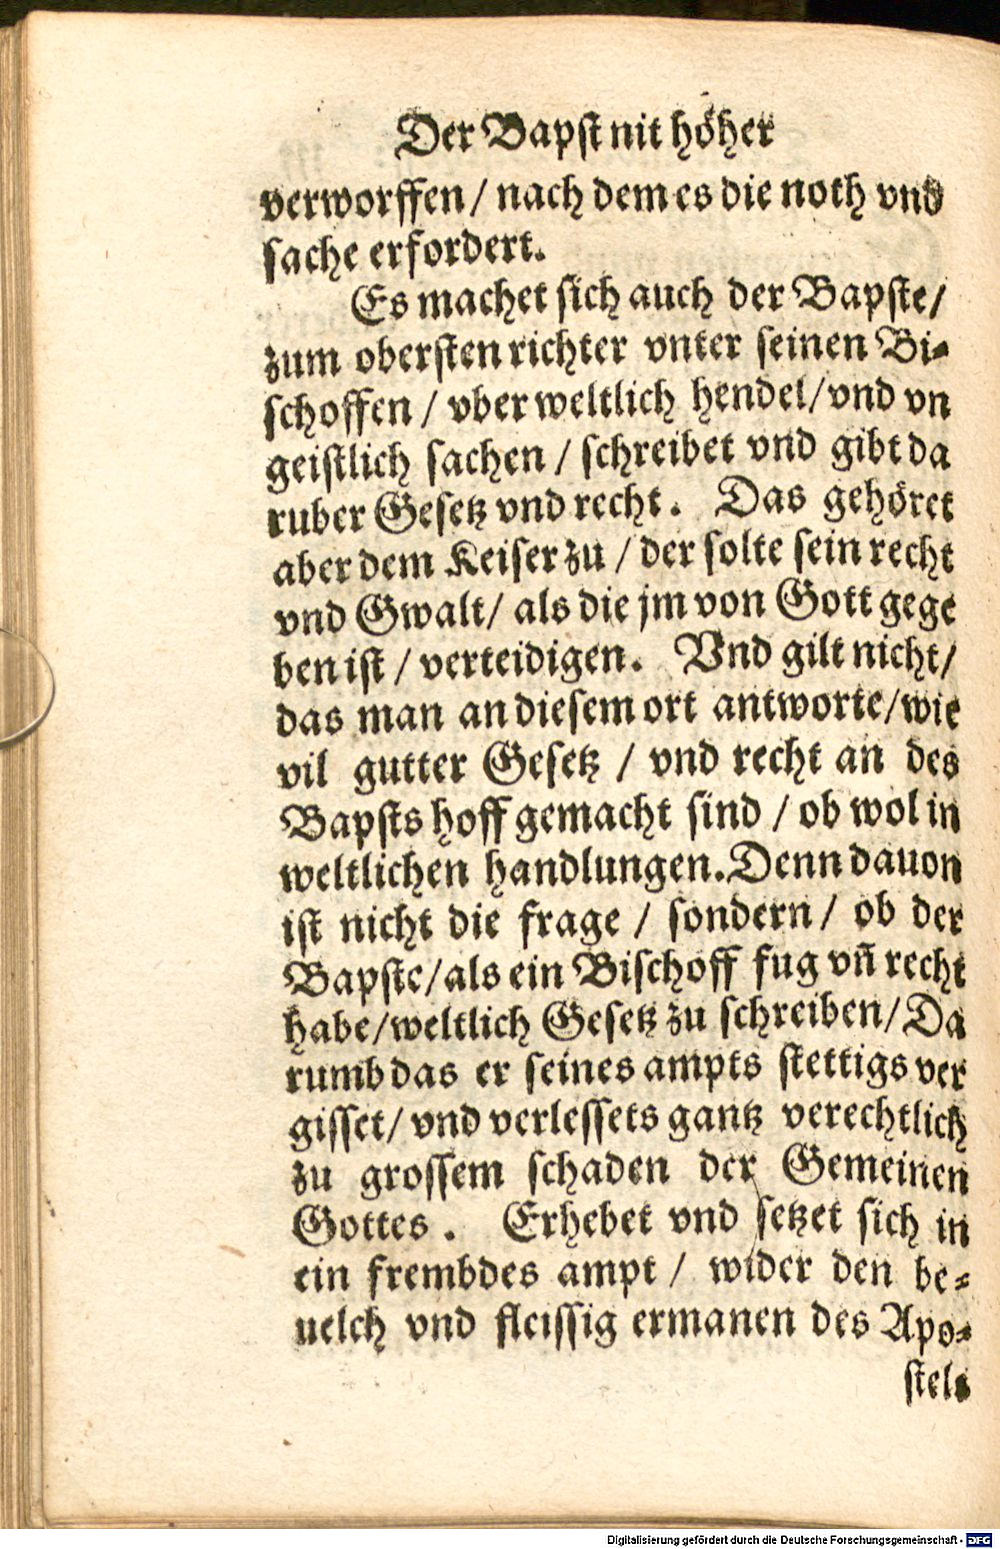 Der Bapst nit höher
verworffen / nach dem es die noth vnd
sache erfordert.
Es machet sich auch der Bapste /
zum obersten richter vnter seinen Bi-
schoffen / vber weltlich hendel / vnd vn
geistlich sachen / schreibet vnd gibt da
ruber Gesetz vnd recht. Das gehöret
aber dem Keiser zu / der solte sein recht
vnd Gwalt / als die jm von Gott gege
ben ist / verteidigen. Vnd gilt nicht /
das man an diesem ort antworte / wie
vil gutter Gesetz / vnd recht an des
Bapsts hoff gemacht sind / ob wol in
weltlichen handlungen. Denn dauon
ist nicht die frage / sondern / ob der
Bapste / als ein Bischoff fug vñ recht
habe / weltlich Gesetz zu schreiben / Da
rumb das er seines ampts stettigs ver
gisset / vnd verlessets gantz verechtlich
zu grossem schaden der Gemeinen
Gottes. Erhebet vnd setzet sich in
ein frembdes ampt / wider den be-
uelch vnd fleissig ermanen des Apo-
stels
Digitalisierung gefördert durch die Deutsche Forschungsgemeinschaft - DFG